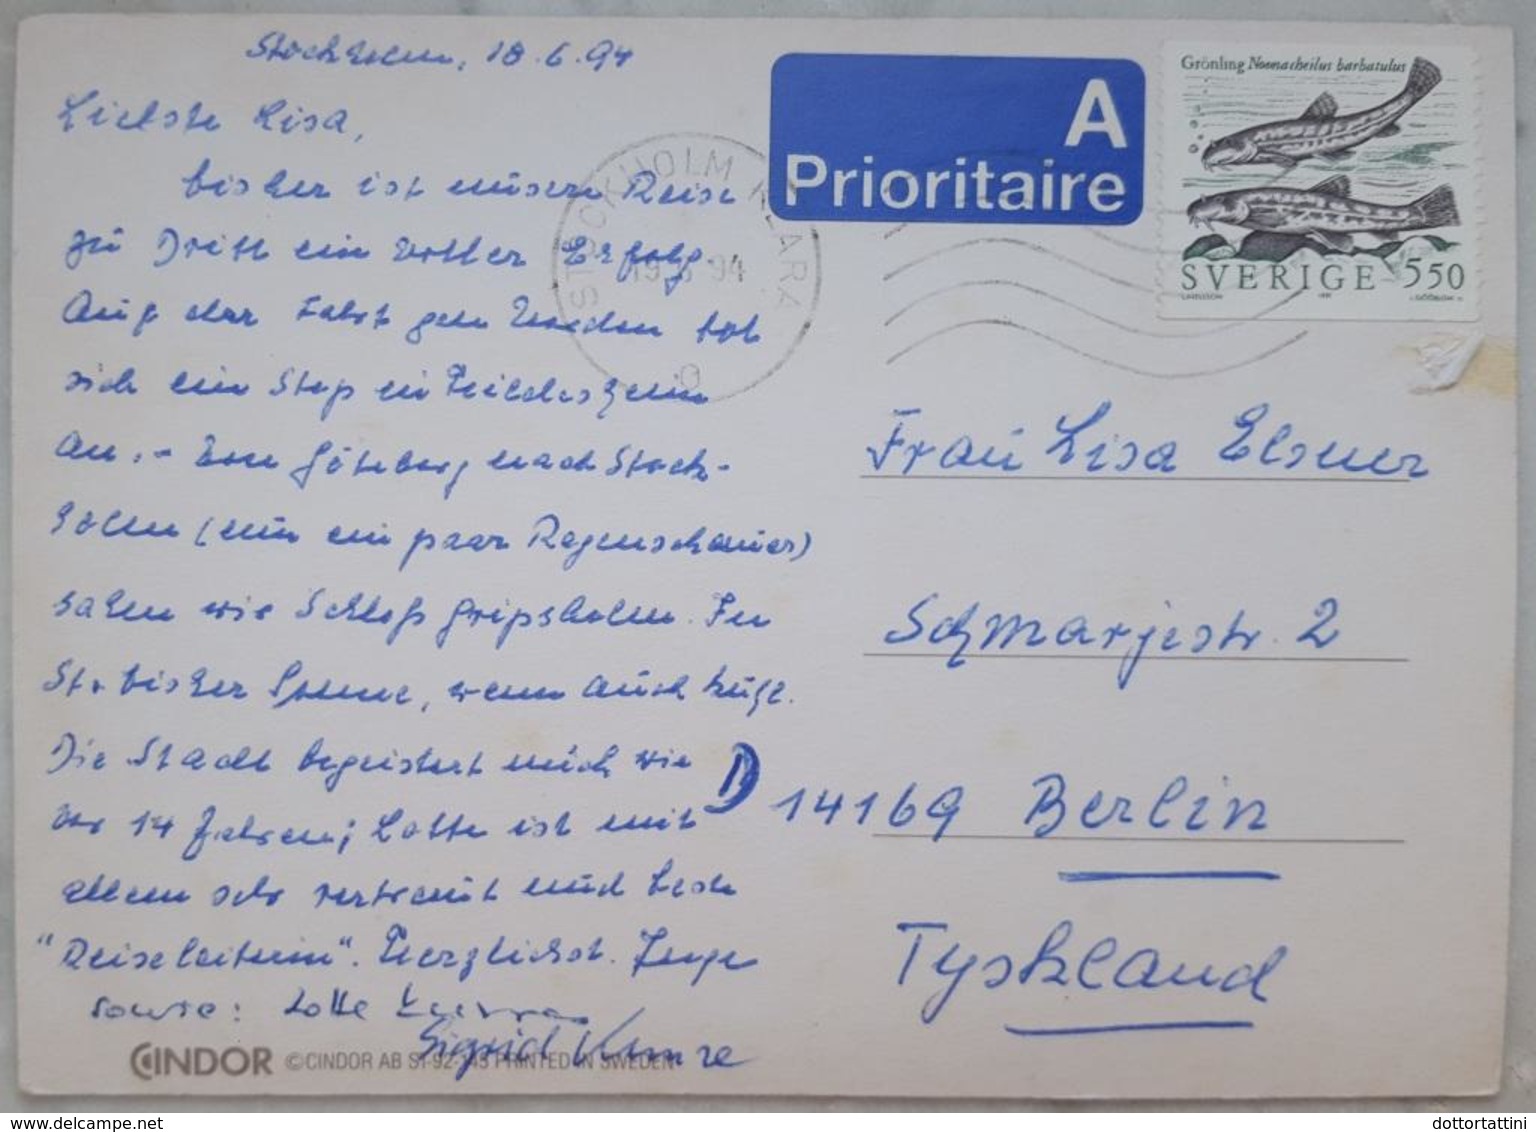 Stockholm, 18.6.94
Liebste Lisa,
bisher ist unsere Reise
zu Dritt ein voller Erfolg.
Auf der Fahrt gen Norden bot
sich ein Stop in Hildesheim
an. - Von Göteborg nach Stock-
holm (nur ein paar Regenschauer)
sahen wir Schloß Gripsholm. In
St. bisher Sonne, wenn auch kühl.
Die Stadt begeistert mich wie
vor 14 Jahren; Lotte ist mit
allem sehr vertraut und beste
"Reiseleiterin". Herzlichst. Inge
sowie: Lotte
Sigrid Kunze
CINDOR © CINDOR AB ST-92-143 PRINTED IN SWEDEN
A
Prioritaire
Grönling Noemacheilus barbatulus
SVERIGE 550
STOCKHOLM KLARA
19.6.94
Frau Lisa Elsner
Schmarjestr. 2
D 14169 Berlin
Tyskland
www.delcampe.net
dottortattini